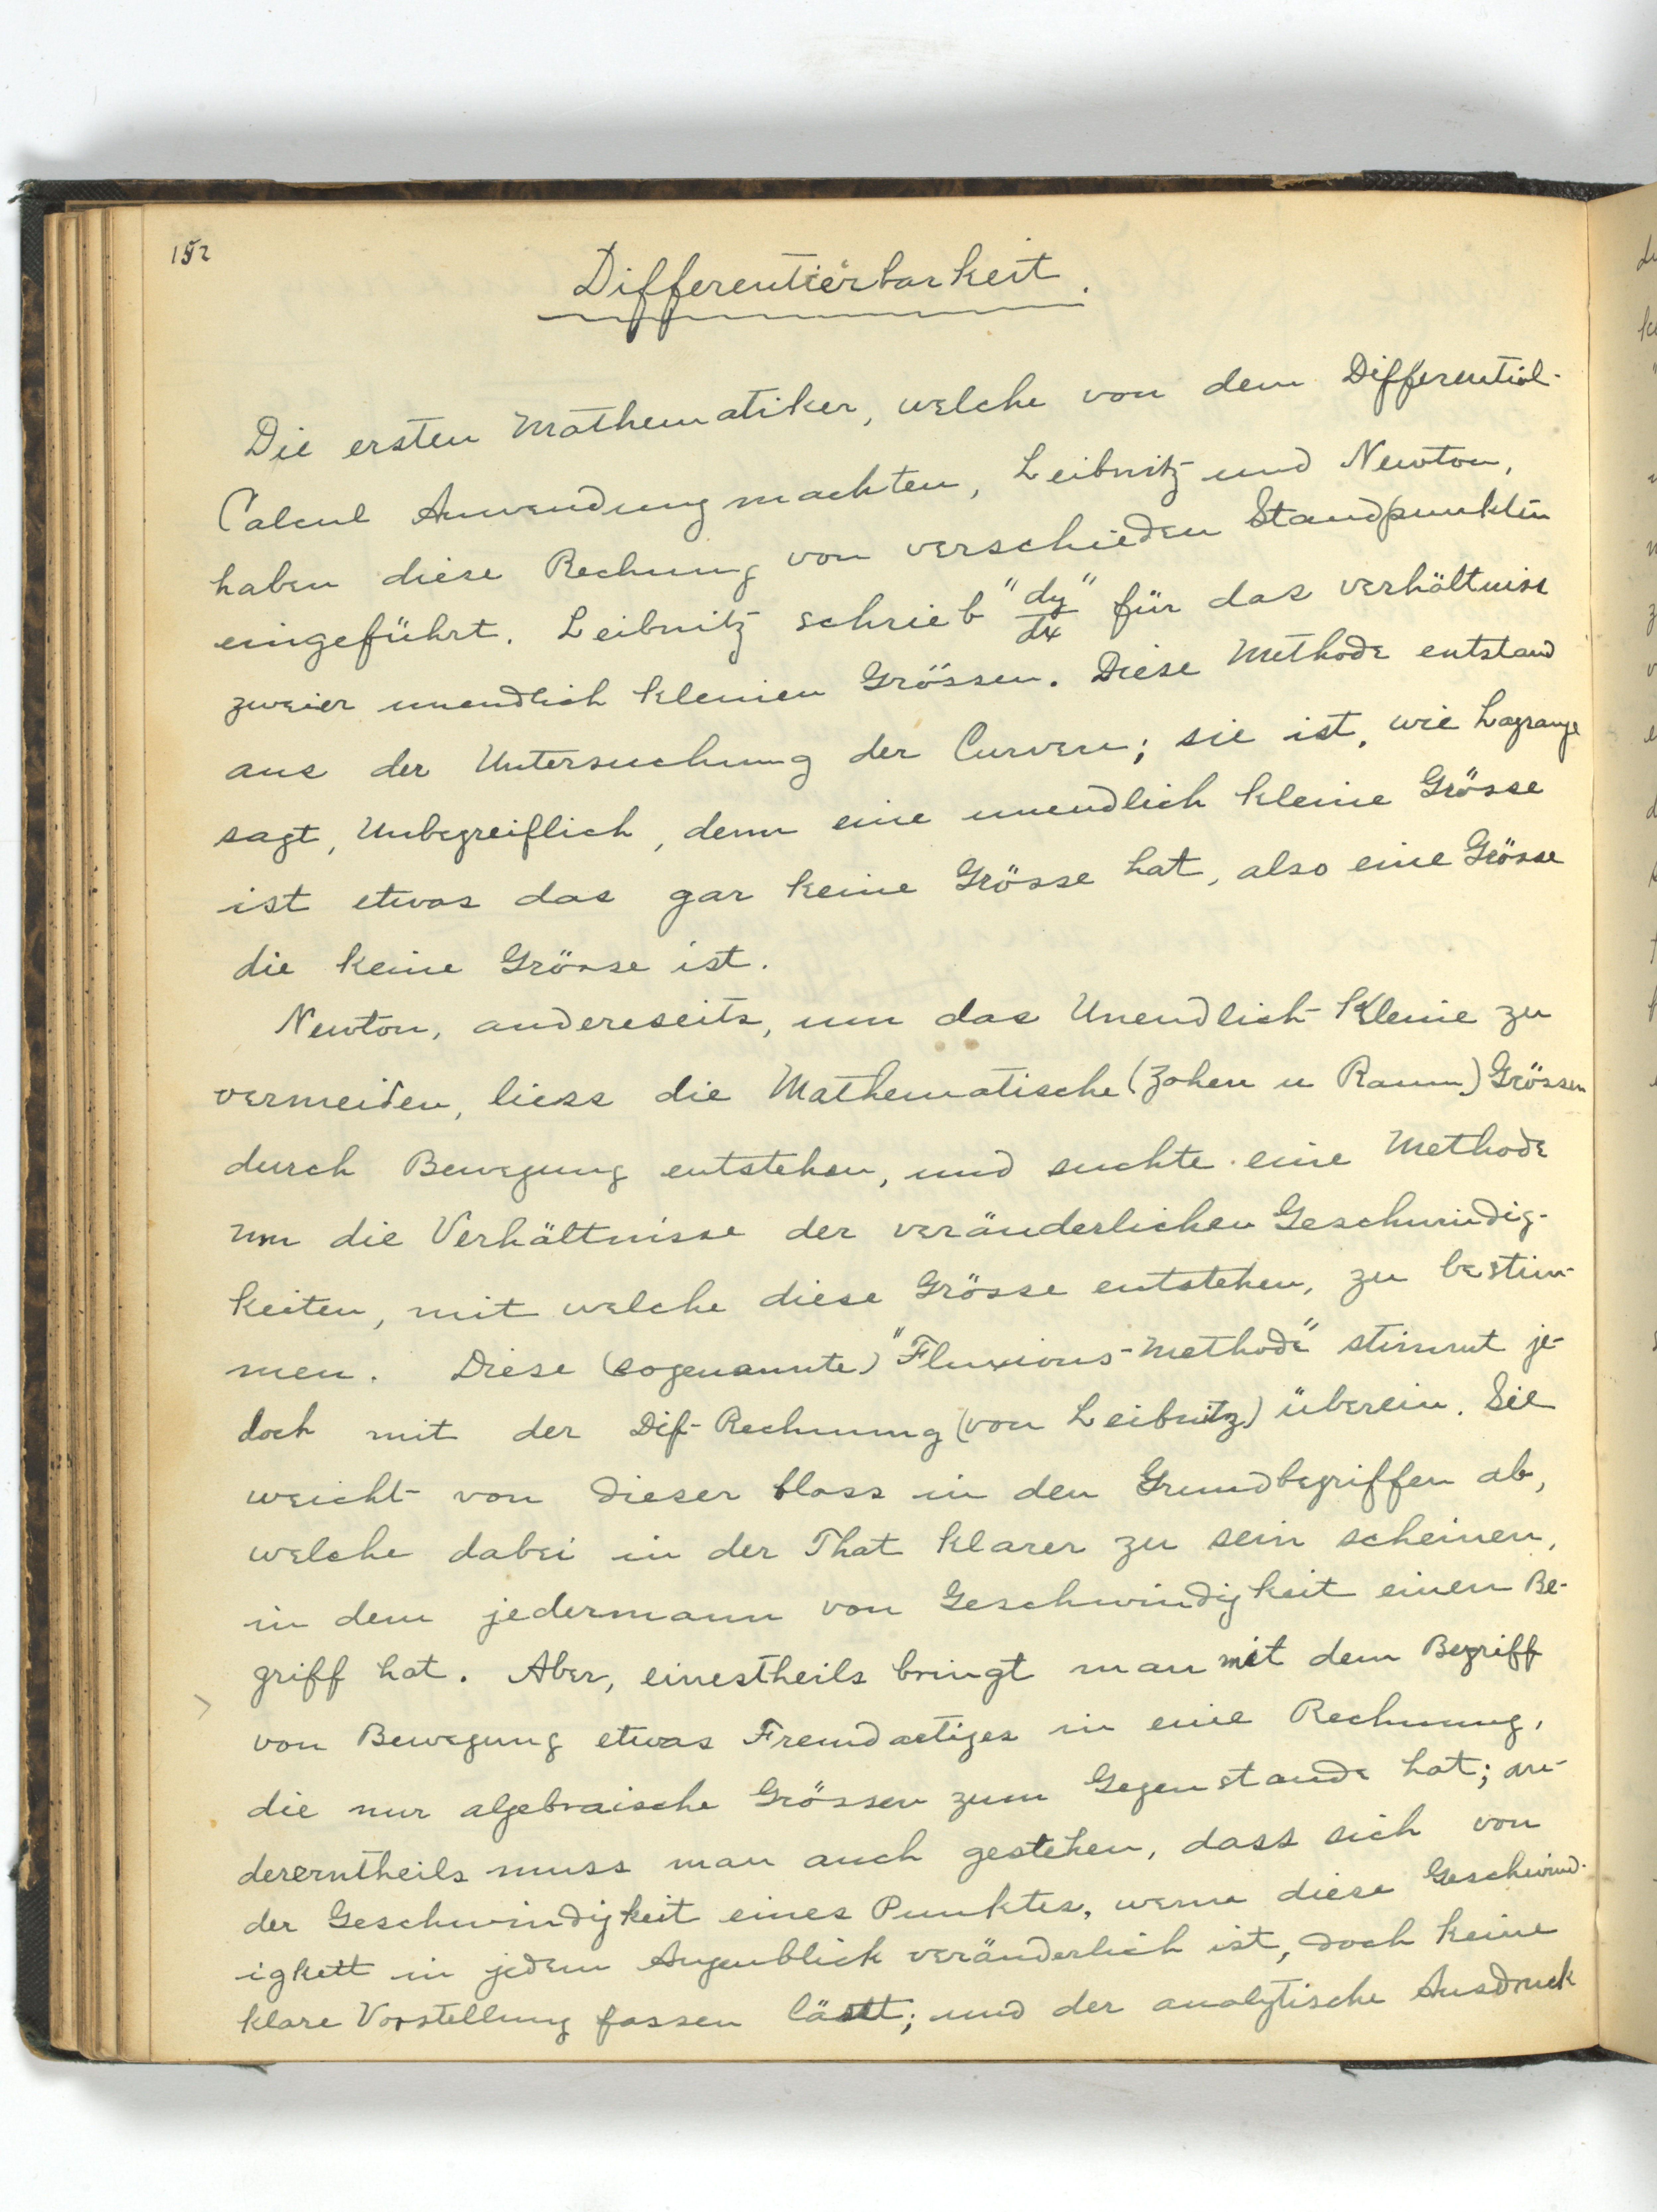 152
Differentierbarkeit.
Die ersten Mathematiker, welche von dem Differential-
Calcul Anwendung machten, Leibnitz und Newton,
haben diese Rechnung von verschieden Standpunkten
eingeführt. Leibnitz schrieb "dy/dx" für das verhältniss
zweier unendlich kleinen Grössen. Diese Methode entstand
aus der Untersuchung der Curven; sie ist, wie Lagrange
sagt, Unbegreiflich, denn eine unendlich kleine Grösse
ist etwas das gar keine Grösse hat, also eine Grösse
die keine Grösse ist.
Newton, andereseits, um das Unendlich-Kleine zu
vermeiden, liess die Mathematische (Zahlen u Raum) Grössen
durch Bewegung entstehen, und suchte eine Methode
um die Verhältnisse der veränderlichen Geschwindig-
keiten, mit welche diese Grösse entstehen, zu bestim-
men. Diese (sogenannte) "Fluxions-Methode" stimmt je-
doch mit der Dif-Rechnung (von Leibnitz) überein. Sie
weicht von dieser bloss in den Grundbegriffen ab,
welche dabei in der That klarer zu sein scheinen,
in dem jedermann von Geschwindigkeit einen Be-
griff hat. Aber, einestheils bringt man mit dem Begriff
von Bewegung etwas Fremdartiges in eine Rechnung,
die nur algebraische Grössen zum Gegenstande hat; an-
dererntheils muss man auch gestehen, dass sich von
der Geschwindigkeit eines Punktes, wenn diese Geschwind-
igkett in jedem Augenblick veränderlich ist, doch keine
klare Vorstellung fassen lässt; und der analytische Ausdruck